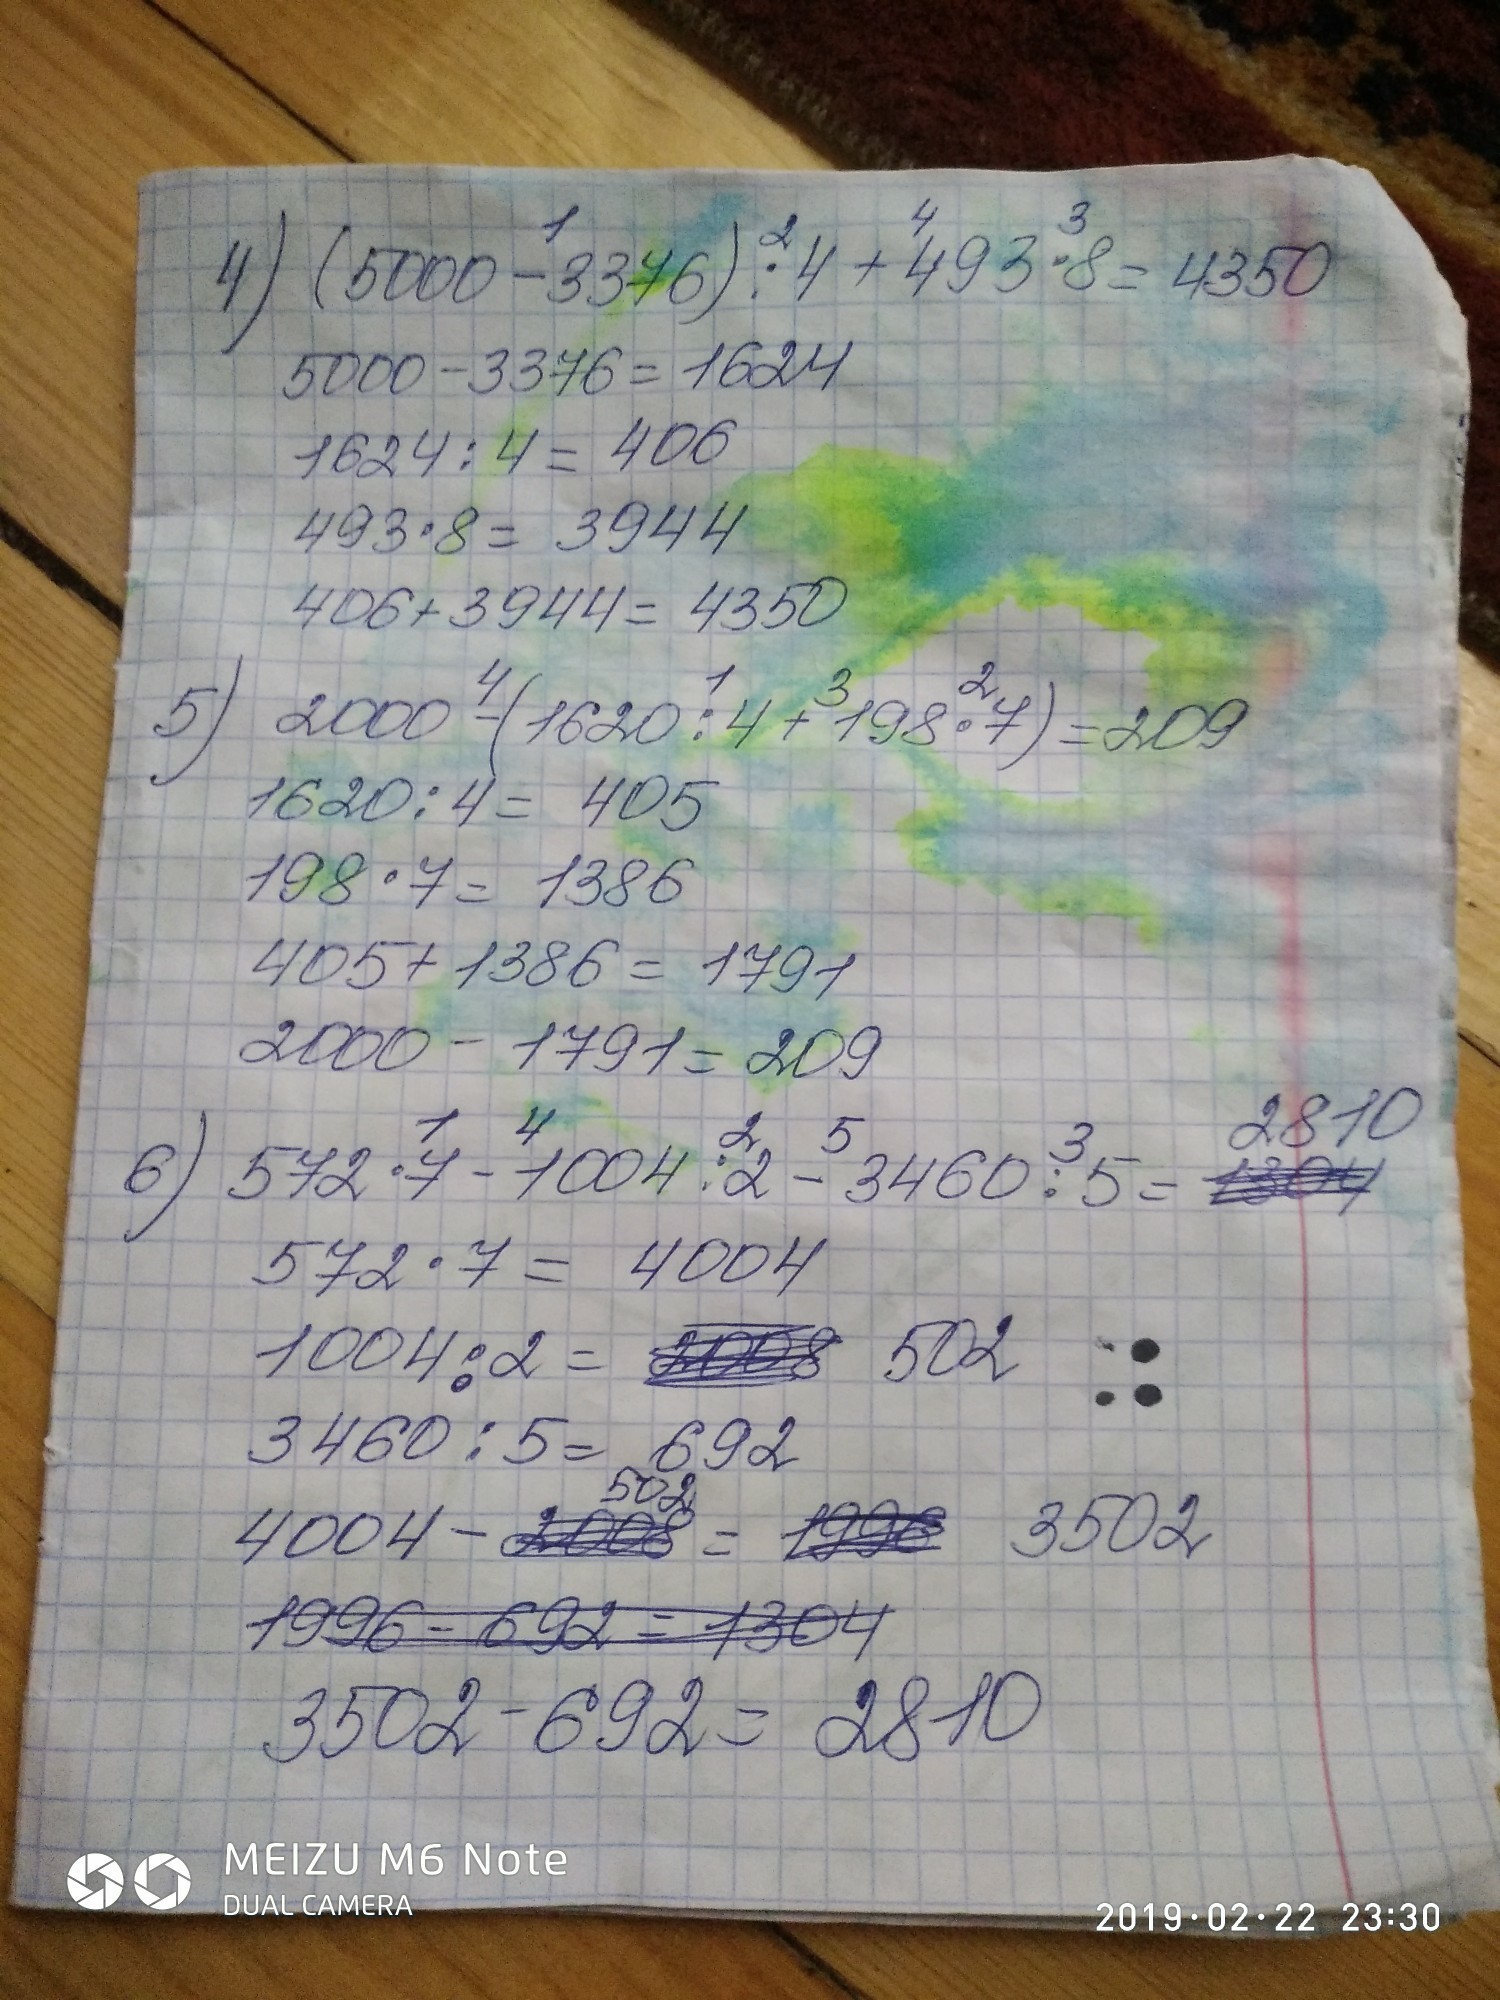 4) (5000 - 3376) : 4 + 493 · 8 = 4350
5000 - 3376 = 1624
1624 : 4 = 406
493 · 8 = 3944
406 + 3944 = 4350
5) 2000 - (1620 : 4 + 198 · 7) = 209
1620 : 4 = 405
198 · 7 = 1386
405 + 1386 = 1791
2000 - 1791 = 209
2810
6) 572 · 7 - 1004 : 2 - 3460 : 5 = 1304
572 · 7 = 4004
1004 : 2 = 2008 502
3460 : 5 = 692
502
4004 - 2008 = 1996 3502
1996 - 692 = 1304
3502 - 692 = 2810
MEIZU M6 Note
DUAL CAMERA
2019·02·22 23:30